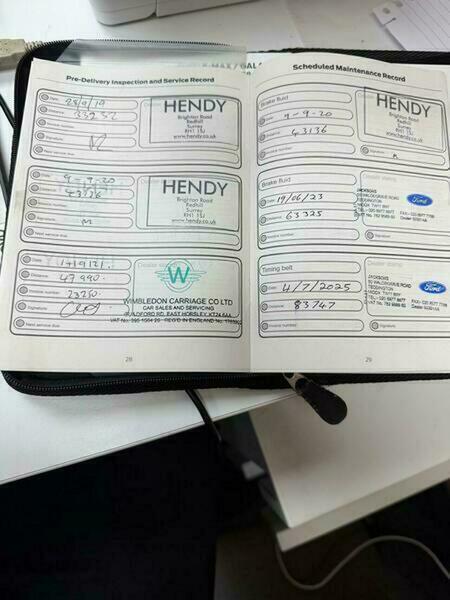 Pre-Delivery Inspection and Service Record
Date 25/9/19
Distance 33232
Invoice number
Signature
Next service due
HENDY
Brighton Road
Redhill
Surrey
RH1
www.hendy.co.uk
Date 9-9-20
Distance 43136
Invoice number
Signature
Next service due
HENDY
Brighton Road
Redhill
Surrey
RH1
www.hendy.co.uk
Date
Distance 47990.
Invoice number 23250
Signature
Next service due
Dealer stamp
W
WIMBLEDON CARRIAGE CO LTD
CAR SALES AND SERVICING
GUILDFORD RD, EAST HORSLEY, KT24
28
Scheduled Maintenance Record
Brake fluid
Date 9-9-20
Distance 43136
Invoice number
Signature
HENDY
Brighton Road
Redhill
Surrey
RH1
www.hendy.co.uk
Brake fluid
Date 19/06/23
Distance 63325
Invoice number
Signature
Dealer stamp
JACKSONS
TEDDINGTON
Ford
Timing belt
Date 4/7/2025
Distance 83747
Invoice number
Signature
Dealer stamp
JACKSONS
TEDDINGTON
Ford
29